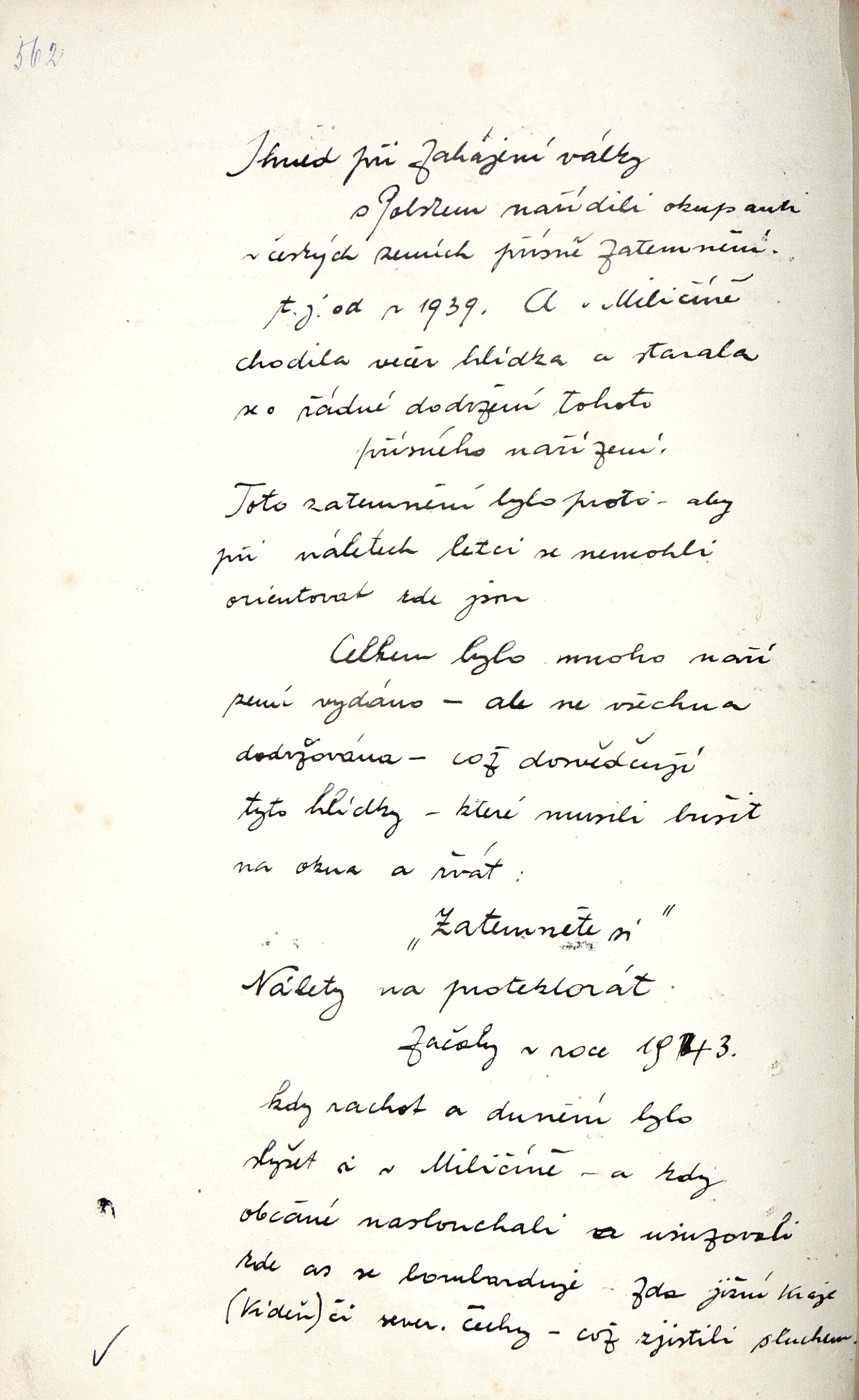 562
Ihned při zahájení války
s Polskem nařídili okupanti
v českých zemích přísně zatemnění.
t.j. od r 1939. A v Miličíně
chodila večer hlídka a starala
se o řádné dodržení tohoto
přísného nařízení.
Toto zatemnění bylo proto - aby
při náletech letci se nemohli
orientovat kde jsou
Celkem bylo mnoho naří
zení vydáno - ale ne všechna
dodržována - což dosvědčují
tyto hlídky - které musili bušit
na okna a řvát:
„Zatemněte si"
Nálety na protektorát
začaly v roce 1943.
kdy rachot a dunění bylo
slyšet i v Miličíně - a kdy
občané naslouchali a usuzovali
kde as se bombarduje - zda jižní kraje
(Vídeň) či sever. čechy - což zjistili sluchem.